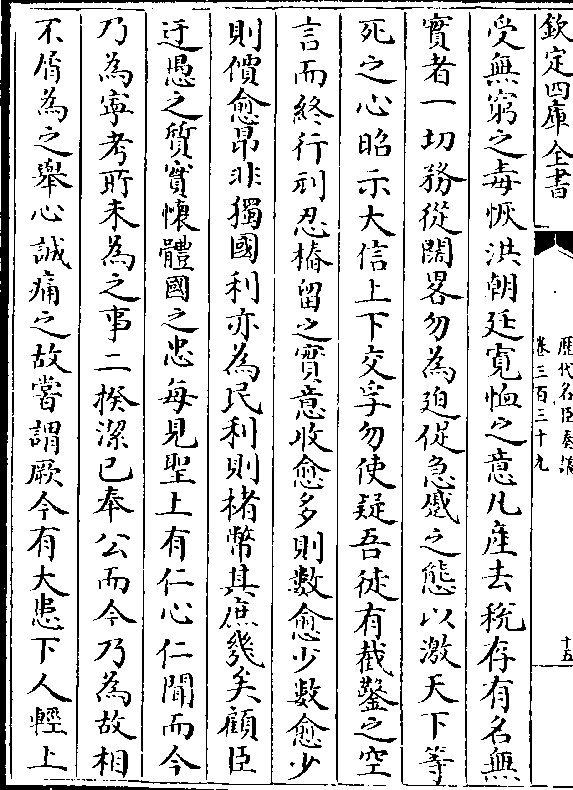 欽定四庫全書
歷代名臣奏議
卷三百三十九
十五
受無窮之毒恢洪朝廷寛恤之意凡産去稅存有名無
實者一切務從闊畧勿為迫促急蹙之態以激天下等
死之心昭示大信上下交孚勿使疑吾徒有截鑿之空
言而終行刓忍樁留之實意收愈多則數愈少數愈少
則價愈昂非獨國利亦為民利則楮幣其庶幾矣顧臣
迂愚之質實懷體國之忠每見聖上有仁心仁聞而今
乃為寧考所未為之事二揆潔已奉公而今乃為故相
不屑為之舉心誠痛之故嘗謂厥今有大患下人輕上